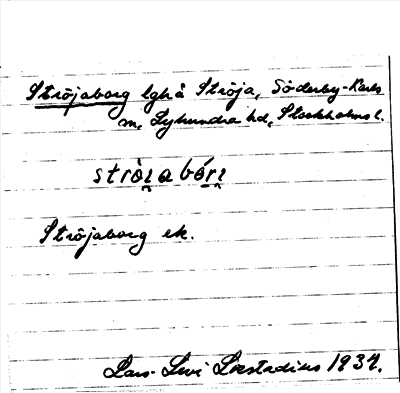 Ströjaborg lgh å Ströja, Söderby-Karls
sn, Lyhundra hd, Stockholms l.
strò̀ı̯abórı̯
Ströjaborg ek.
Lars-Levi Læstadius 1934.